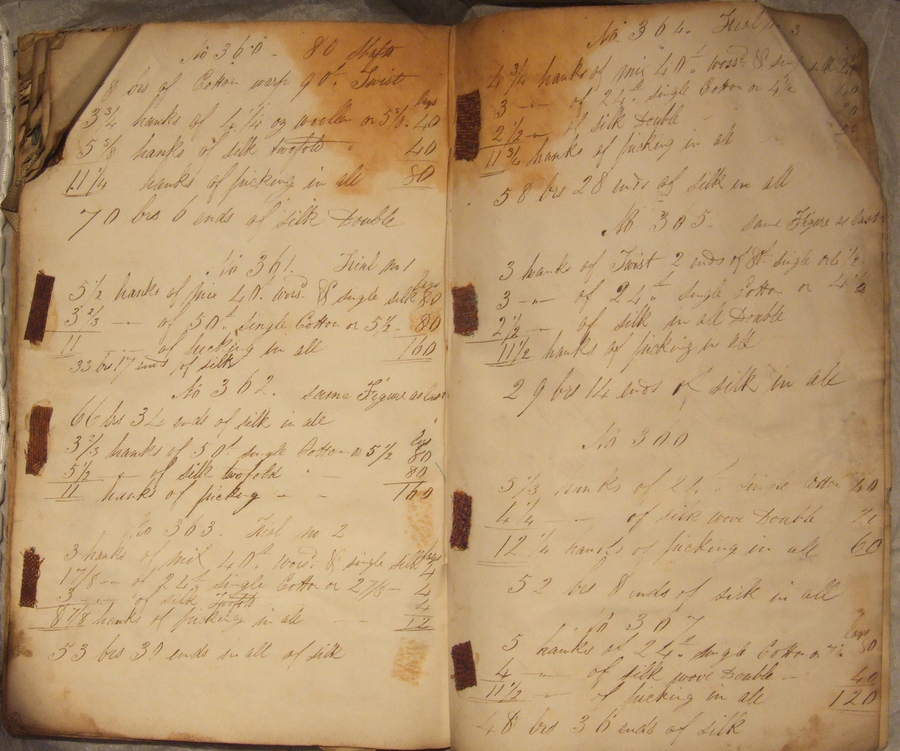 No 360 - 80
8 brs of Cotton warp 90t. Twist
lays
3 3/4 hanks of 4 1/4 oz woollen or 5 3/8. 40
5 3/8 hanks of silk twofold 40
11 1/4 hanks of picking in all 80
70 brs 6 ends of silk Double
No 361. Trial no 1
lays
5 1/2 hanks of mix 40. worsd. & single silk 80
3 2/3 -- of 50t. single Cotton or 5 1/2 - 80
11 -- of picking in all 160
33 brs 17 ends of silk
No 362. same Figure as last
66 brs 34 ends of silk in all
lays
3 2/3 hanks of 50t single Cotton or 5 1/2 80
5 1/2 -- of silk twofold - 80
11 hanks of picking - - 160
No 363. Trial no 2
lays
3 hanks of mix 40t. worsd. & single silk 4
1 7/8 -- of 24t single Cotton or 2 7/8 - 4
3 -- of silk 4
8 7/8 hanks of picking in all - - 12
53 brs 30 ends in all of silk
No 364. Trial no 3
4 3/4 hanks of mix 40t. worsd. & single silk
3 -- of 24t. single Cotton or 4 1/2
2 1/2 -- of silk Double
11 3/4 hanks of picking in all
58 brs 28 ends of silk in all
No 365. same Figure as last
3 hanks of Twist 2 ends of 8t. single or 6 1/2
3 -- of 24t. single Cotton or 4 1/2
2 1/2 -- of silk in all Double
11 1/2 hanks of picking in all
29 brs 14 ends of silk in all
No 300
hanks of 24. single Cotton 40
4 1/4 -- of silk wove Double 20
12 1/4 hanks of picking in all 60
52 brs 8 ends of silk in all
No 307
lays
5 hanks of 24t. single Cotton or 7 1/2 80
4 -- of silk wove Double - 40
11 1/2 -- of picking in all 120
48 brs 36 ends of silk